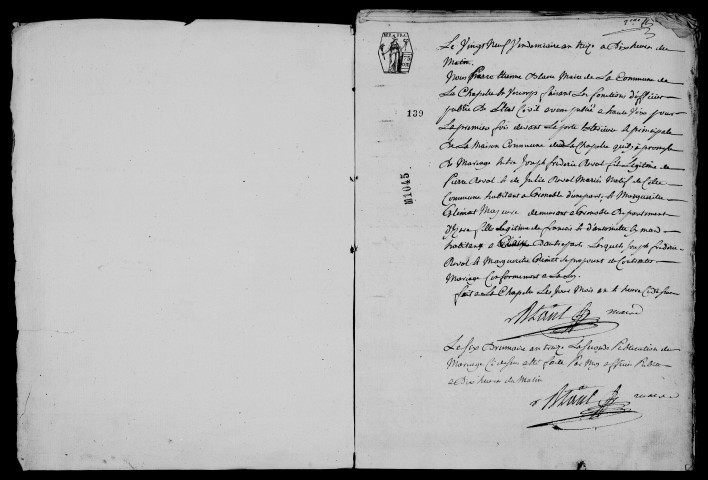 139
M1045
Le Vingt Neuf Vendemiaire an treize a Dix heures du
Matin
Nous Pierre Etienne Maire de La Commune de
La Chapelle faisant Les fonctions d'officier
public de L'Etat Civil avons publié a haute Voix pour
La premiere fois devant La porte Exterieure & principale
de La Maison Commune de La Chapelle promesse
de Mariage Entre Joseph frederic Roval fils Legitime de
Pierre Roval & de Julie Roval Mariés Natif de Cette
Commune habitant a Grenoble d'une part, & Marguerite
Clement Majeure demeurant a Grenoble Departement
d'Isere fille Legitime de francois & d'antoinette
habitant a D'autre part Lesquels Joseph frederic
Roval & Marguerite Clement Se proposent de Contracter
Mariage Conformement a La Loy
fait a La Chapelle Les Jour Mois an & heure Ci dessus
maire
Le Six Brumaire an treize La Seconde Publication du
Mariage Ci dessus a été faite Par Moy officier Public
a Dix heures du Matin
maire